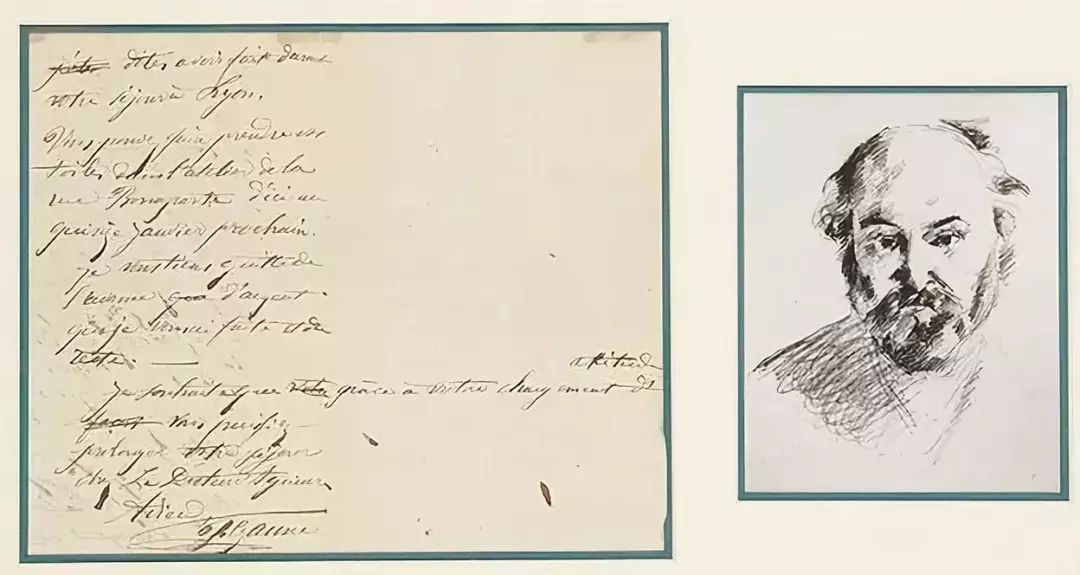 dites avoir fait durant
votre séjour à Lyon.
Vous pouvez faire prendre vos
toiles dans l'atelier de la
rue Bonaparte d'ici au
quinze janvier prochain.
je vous tiens quitte de
l'avance d'argent
que je vous ai faite et du
reste. —
attitude
Je souhaite que grâce à votre changement d'
vous puissiez
prolonger votre séjour
chez Le Docteur Aguiar
Adieu
P Cezanne